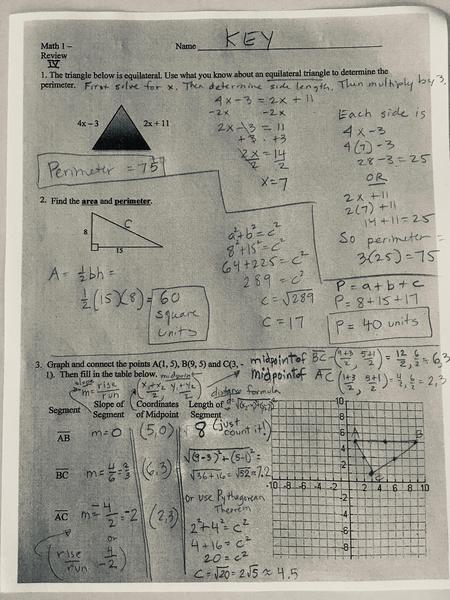 KEY
Math 1 –
Review
IV
Name
1. The triangle below is equilateral. Use what you know about an equilateral triangle to determine the
perimeter. First solve for x. Then determine side length. Then multiply by 3.
4x – 3
2x + 11
4x - 3 = 2x + 11
-2x -2x
2x - 3 = 11
+3 +3
2x = 14
2 2
x = 7
Each side is
4x - 3
4(7) - 3
28 - 3 = 25
OR
2x + 11
2(7) + 11
14 + 11 = 25
So perimeter =
3(25) = 75
Perimeter = 75
2. Find the area and perimeter.
8
C
15
A = ½bh =
½(15)(8) = 60
square
units
a² + b² = c²
8² + 15² = c²
64 + 225 = c²
289 = c²
c = √289
c = 17
P = a + b + c
P = 8 + 15 + 17
P = 40 units
3. Graph and connect the points A(1, 5), B(9, 5) and C(3,
1). Then fill in the table below.
midpoint of BC - (9+3/2, 5+1/2) = 12/2, 6/2 = 6,3
Midpoint of AC (1+3/2, 5+1/2) = 4/2, 6/2 = 2,3
slope
m = rise/run
midpoint
(x₁+x₂/2, y₁+y₂/2)
distance formula
Segment
Slope of
Segment
Coordinates
of Midpoint
Length of
Segment
AB
m = 0
(5,0)
8 (just
count it!)
BC
m = 4/6 = 2/3
(6,3)
√(9-3)² + (5-1)² =
√36+16 = √52 = 7.2
or use Pythagorean
Theorem
AC
m = -4/2 = -2
(2,3)
2² + 4² = c²
4 + 16 = c²
20 = c²
c = √20 = 2√5 ≈ 4.5
or
(rise/run 4/-2)
10
8
6
4
2
-10 -8 -6 -4 -2
2 4 6 8 10
-2
-4
-6
-8
A
B
C